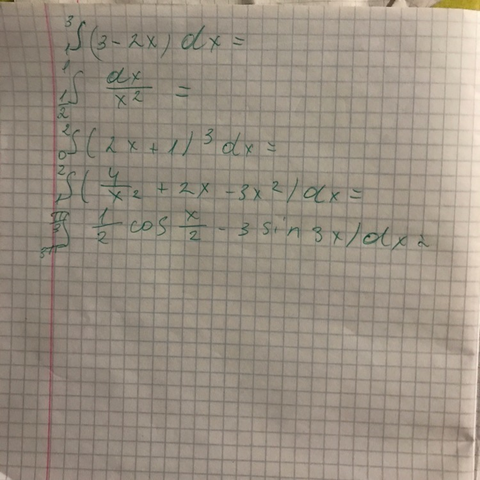 3∫1 (3 - 2x) dx =
1∫1/2 dx/x² =
2∫0 (2x + 1)³ dx =
2∫1 (4/x² + 2x - 3x²) dx =
π/3∫ 1/2 cos x/2 - 3 sin 3x) dx =